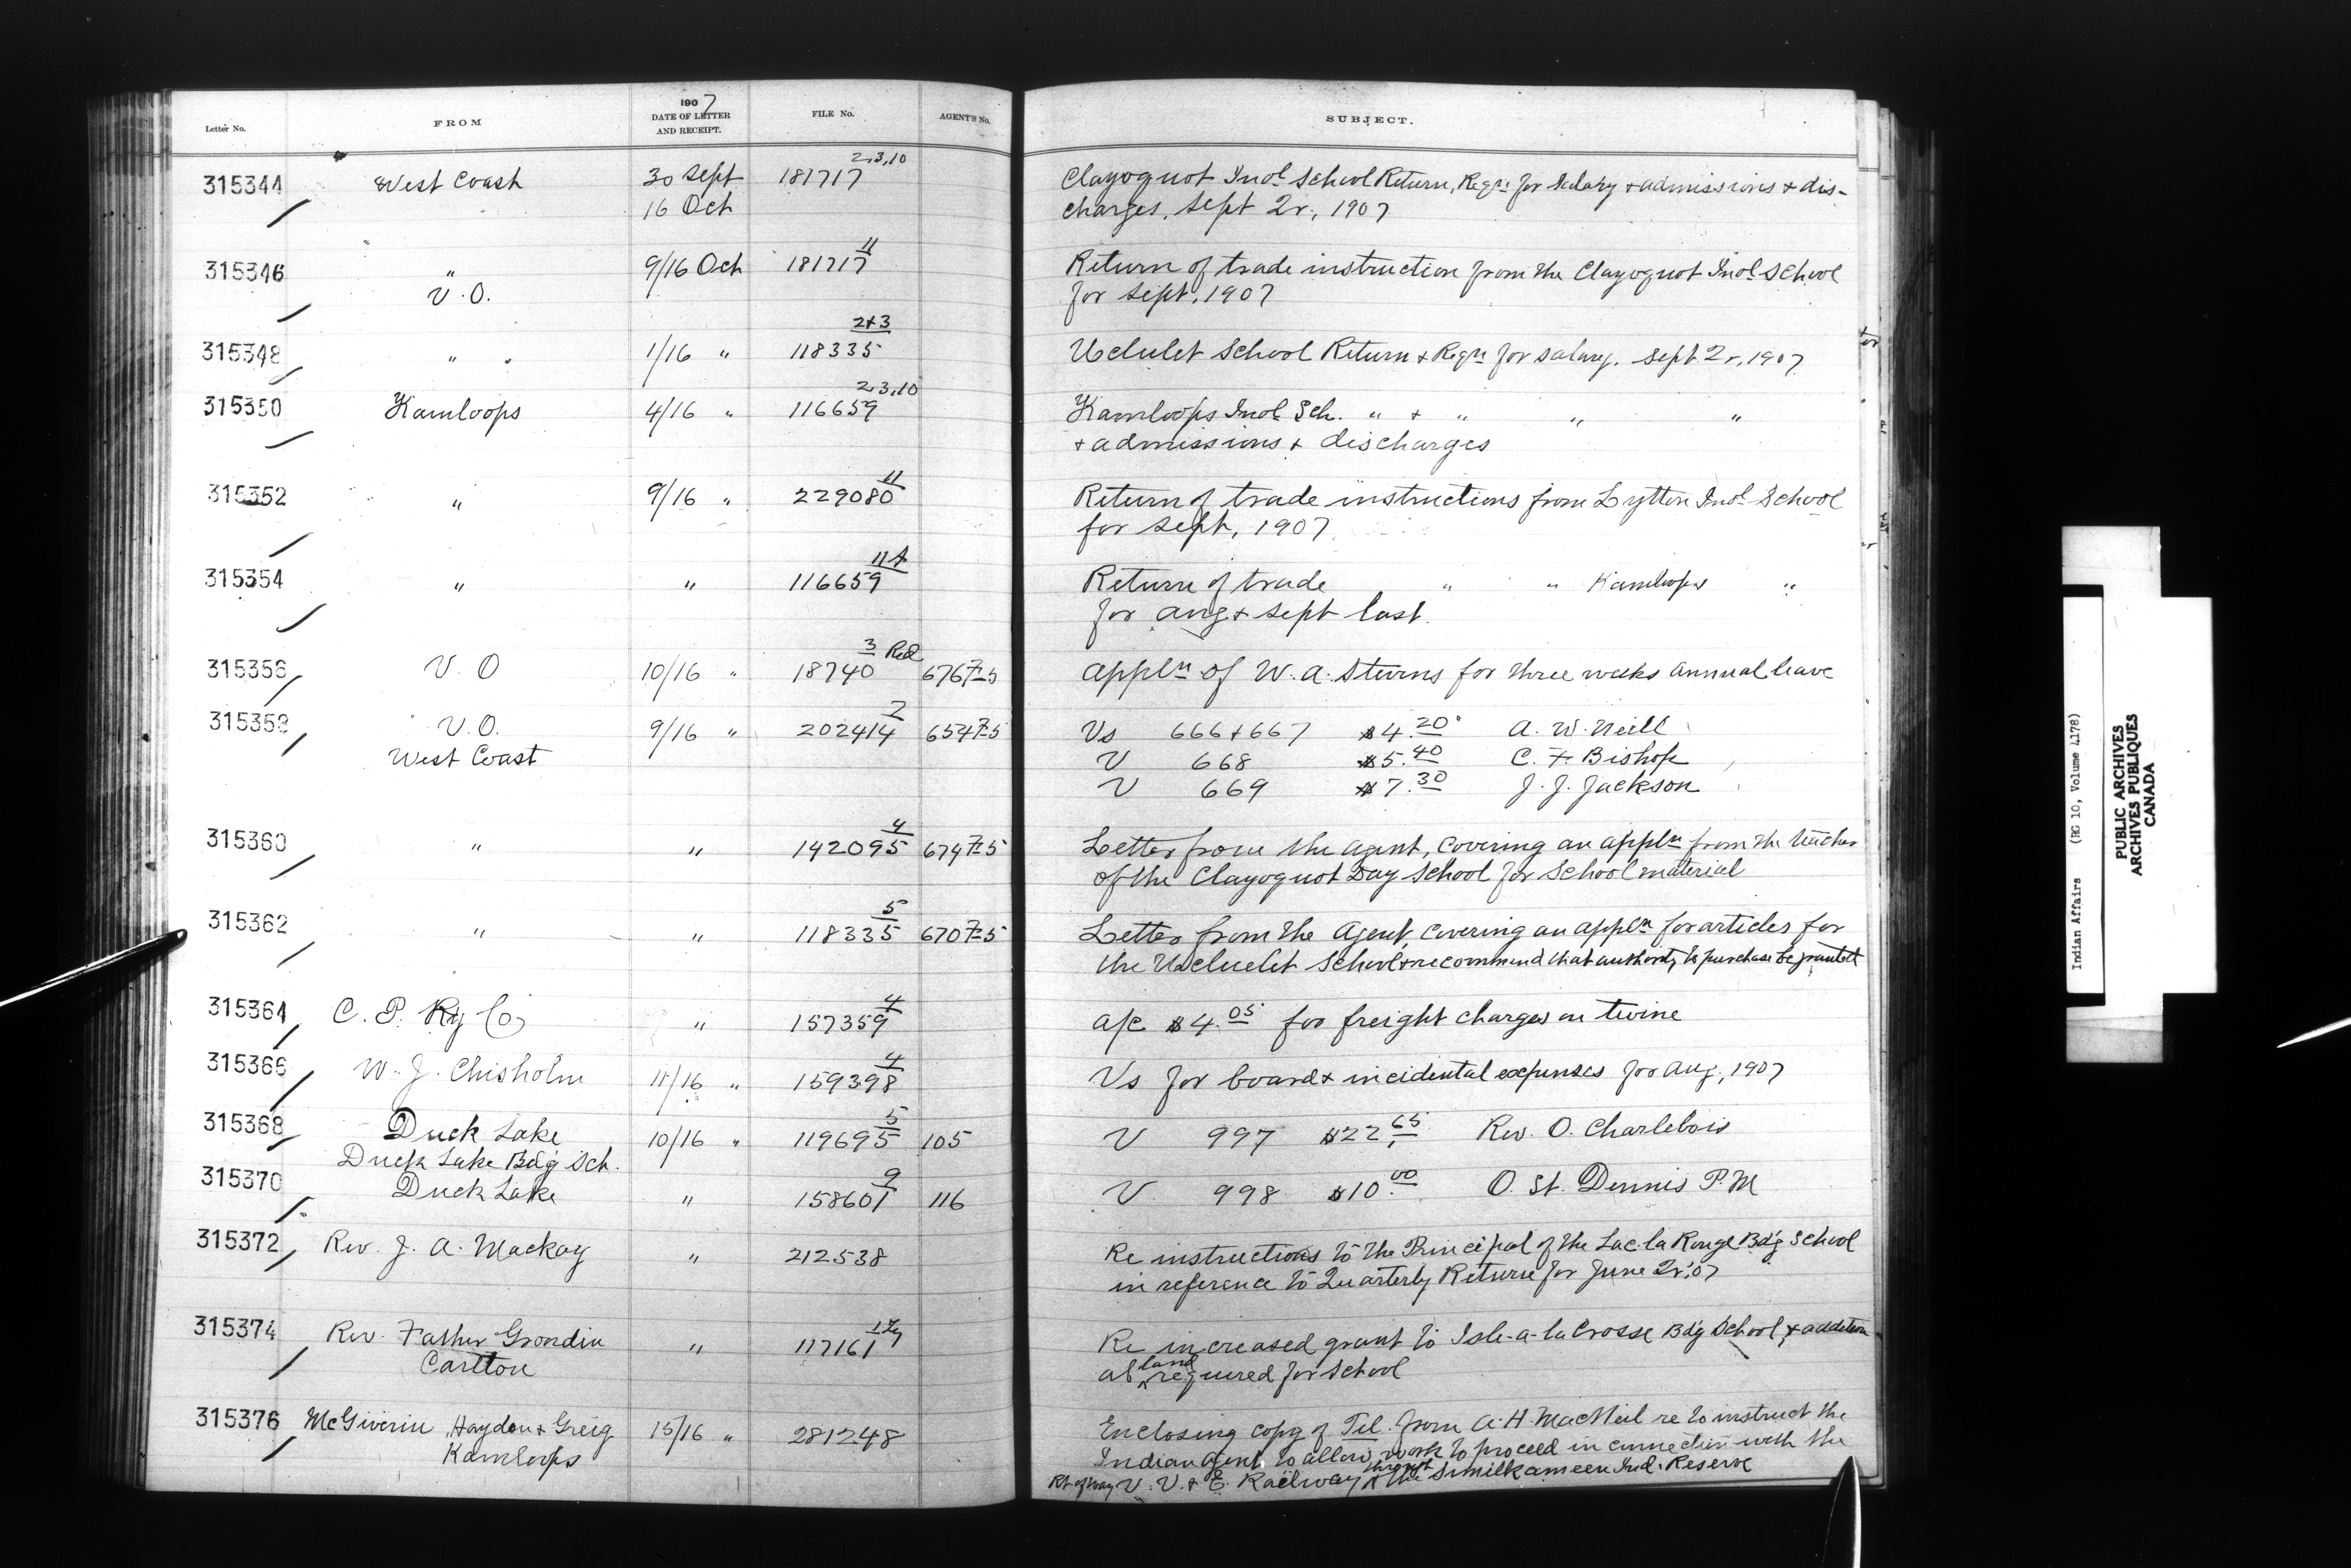 Letter No. FROM 1907 DATE OF LETTER AND RECEIPT. FILE No. AGENTS No. SUBJECT.
2,3,10
315344 West Coast 30 Sept 181717 Clayoquot Indl School Return, Reqn for Salary + admissions + dis-
16 Oct charges, Sept 2r, 1907
11
315346 " 9/16 Oct 181717 Return of trade instruction from the Clayoquot Indl School
V.O. for Sept, 1907
2+3
315348 " 1/16 " 118335 Uclulet School Return + Reqn for salary. Sept 2r, 1907
2,3,10
315350 Kamloops 4/16 " 116659 Kamloops Indl Sch. " + " " "
+ admissions + discharges
11
315352 " 9/16 " 229080 Return of trade instructions from Lytton Indl School
for Sept, 1907
315354 " " 116659 Return of trade " " Kamloops "
for Aug + Sept last.
3 Red
315356 V. O 10/16 " 18740 676 7-5 Appln of W. A. Sturns for three weeks annual leave
2
315358 V.O. 9/16 " 202414 654 7-5 Vs 666+667 $4.20 A. W. Neill
West Coast V 668 $5.40 C. F. Bishop
V 669 $7.30 J. J. Jackson
4
315360 " " 142095 674 7-5 Letter from the Agent, covering an appln from the teacher
of the Clayoquot Day School for School material
5
315362 " " 118335 670 7-5 Letter from the Agent, covering an appln for articles for
the Ucluelet School + recommend that authority to purchase be granted
4
315364 C. P. Ry Co " 157359 a/c $4.05 for freight charges on twine
4
315366 W. J. Chisholm 11/16 " 159398 Vs for board + incidental expenses for Aug, 1907
5
315368 Duck Lake 10/16 " 119695 105 V 997 $22.65 Rev. O. Charlebois
Duck Lake Bdg Sch.
9
315370 Duck Lake " 158601 116 V 998 $10.00 O. St. Dennis P.M
315372 Rev. J. A. Mackay " 212538 Re instructions to the Principal of the Lac la Rouge Bdg School
in reference to Quarterly Return for June 2r, 07
315374 Rev. Father Grondin " 117161 Re increased grant to Isle-a-la Crosse Bdg School, + addition
Carlton al land required for School
315376 McGiverin, Haydon + Greig 15/16 " 281248 Enclosing copy of Tel. from A. H. MacNeil re to instruct the
Kamloops Indian Agent to allow work to proceed in connection with the
Rt. of Way V. V. + E. Railway through the Similkameen Ind. Reserve
Indian Affairs (RG 10, Volume 4178)
PUBLIC ARCHIVES
ARCHIVES PUBLIQUES
CANADA